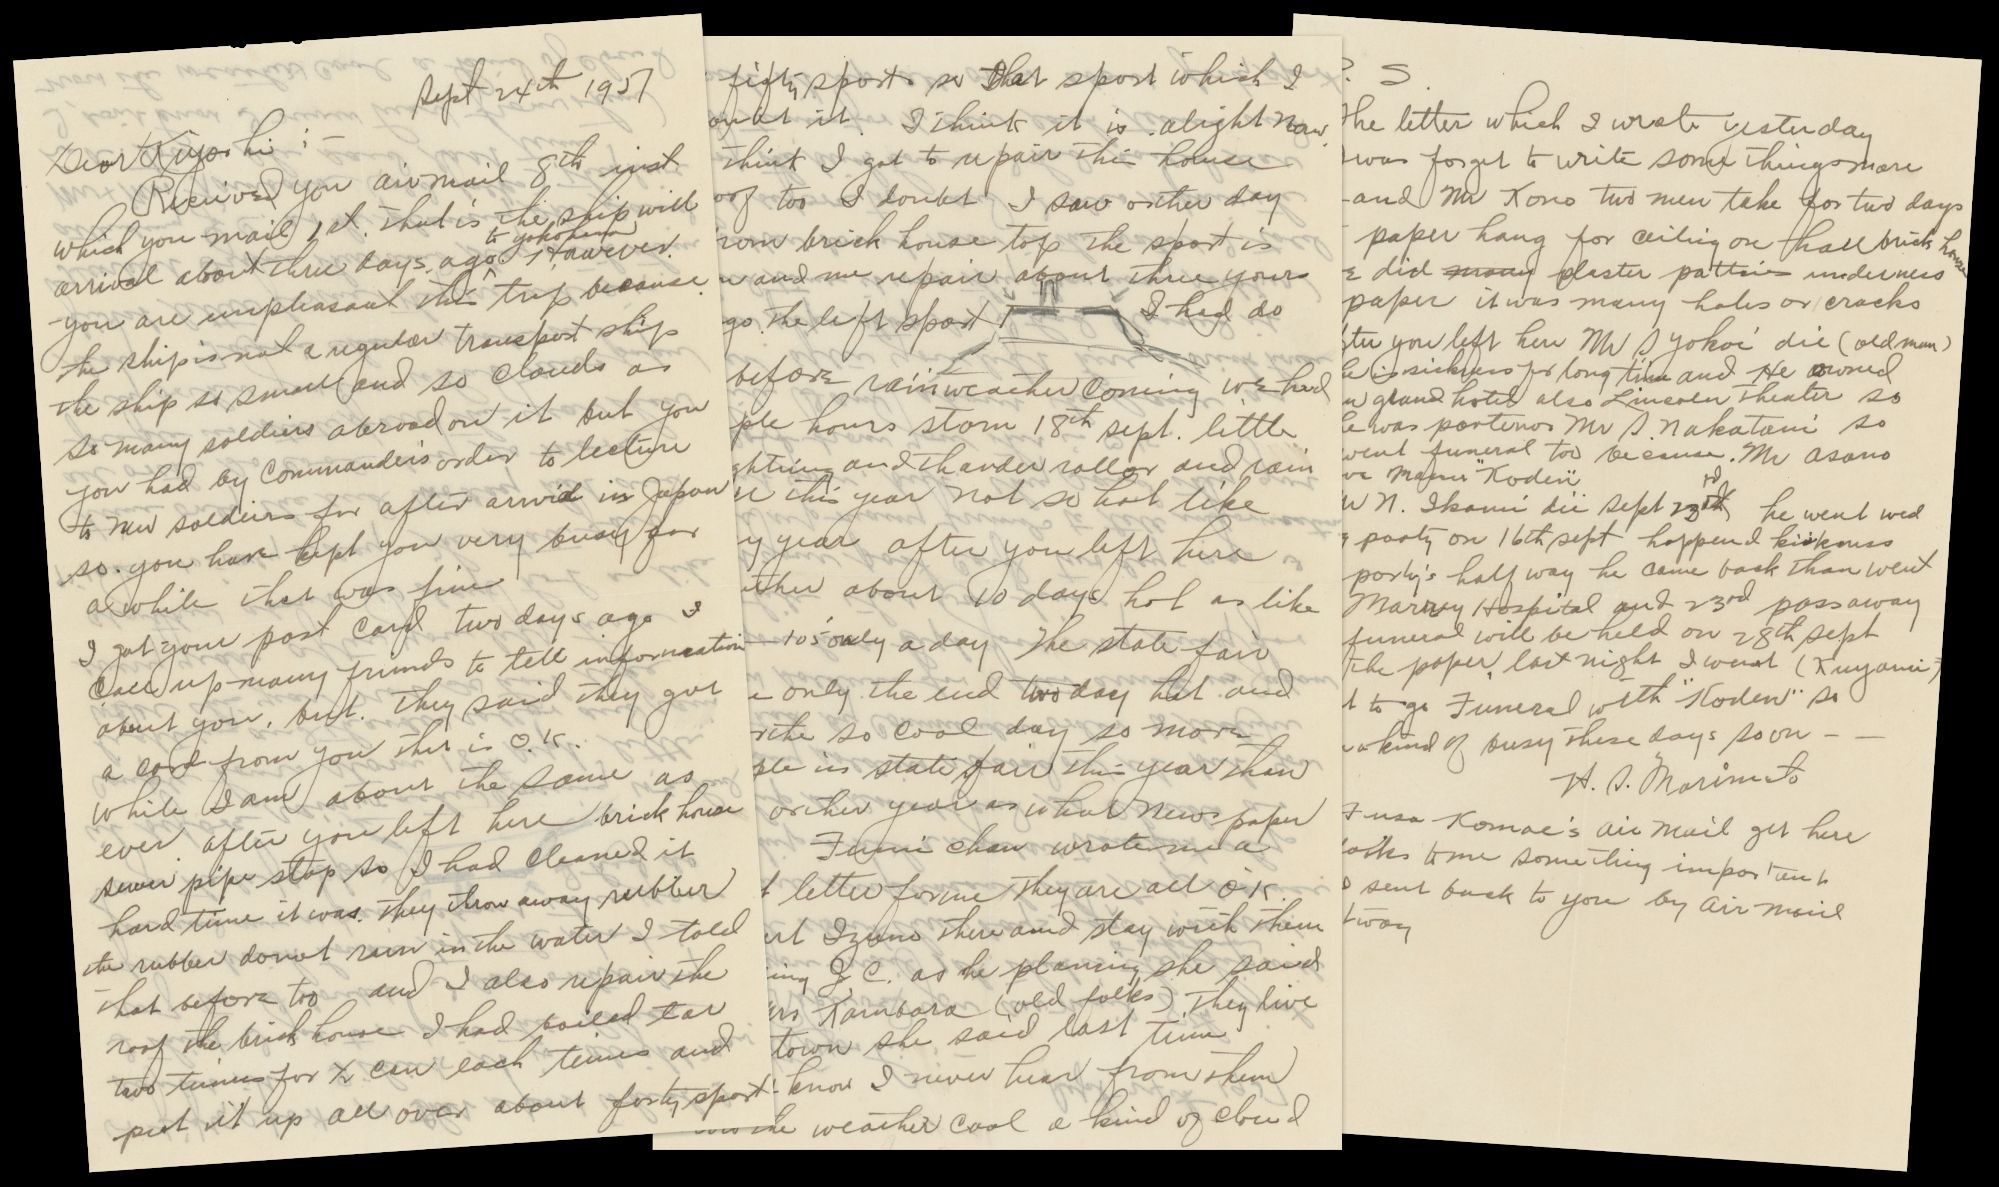 Sept 24th 1957
Dear Kiyoshi :-
Received you air mail 8th inst
which you mail 1st. that is the ship will
arrival about three days ago to Yokohama However.
you are unpleasant this trip because
the ship is not a regular transport ship
the ship so small and so clouds as
so many soldiers abroad on it but you
you had by Commander's order to lecture
to new soldiers for after arrival in Japan
so. you have kept you very busy for
a while that was fine
I got your post card two days ago I
call up many friends to tell information
about you. but. they said they got
a card from you this is O.K.
while I am about the same as
ever after you left here brick house
sewer pipe stop so I had cleaned it
hard time it was. they throw away rubber
the rubber donot run in the water I told
that before too and I also repair the
roof the brick house I had boiled tar
two times for ½ can each times and
put it up all over about forty sport
fifty sports so that sport which I
it. I think it is alright now
think I got to repair this house
too I doubt I saw orther day
brick house top the sport is
and me repair about three years
the left sport I had do
before rain weather coming we had
hours storm 18th Sept. little
and thander roller and rain
this year not so hot like
year after you left here
about 10 days hot as like
105 only a day The state fair
only the end two day hot and
so cool day so more
in state fair this year than
orther year as what news paper
Fumi chan wrote me a
letter for me They are all O.K.
Izuno there and stay with them
J.C. as he planing she said
Kambara (old folks) they live
town she said last time
know I never hear from them
the weather cool a kind of cloud
P. S.
The letter which I wrote yesterday
was forget to write some things more
and Mr Kono two men take for two days
paper hang for ceiling on hall brick house
did many plaster pattein underness
paper it was many holes or cracks
you left here Mr S Yokoi die (old man)
is sickness for long time and He owned
grand hotel also Lincoln Theater so
was partenor Mr S. Nakatani so
went funeral too because. Mr Asano
"Koden"
N. Ikami die Sept 23rd he went wed
party on 16th Sept happend kickness
party's half way he came back than went
Marcy Hospital and 23rd passaway
funeral will be held on 28th Sept
the paper, last night I went (Kuyami)
to go Funeral with "Koden" so
kind of busy these days soon - -
H. S. Morimoto
Fusa Komae's air mail get here
to me something important
sent back to you by air mail